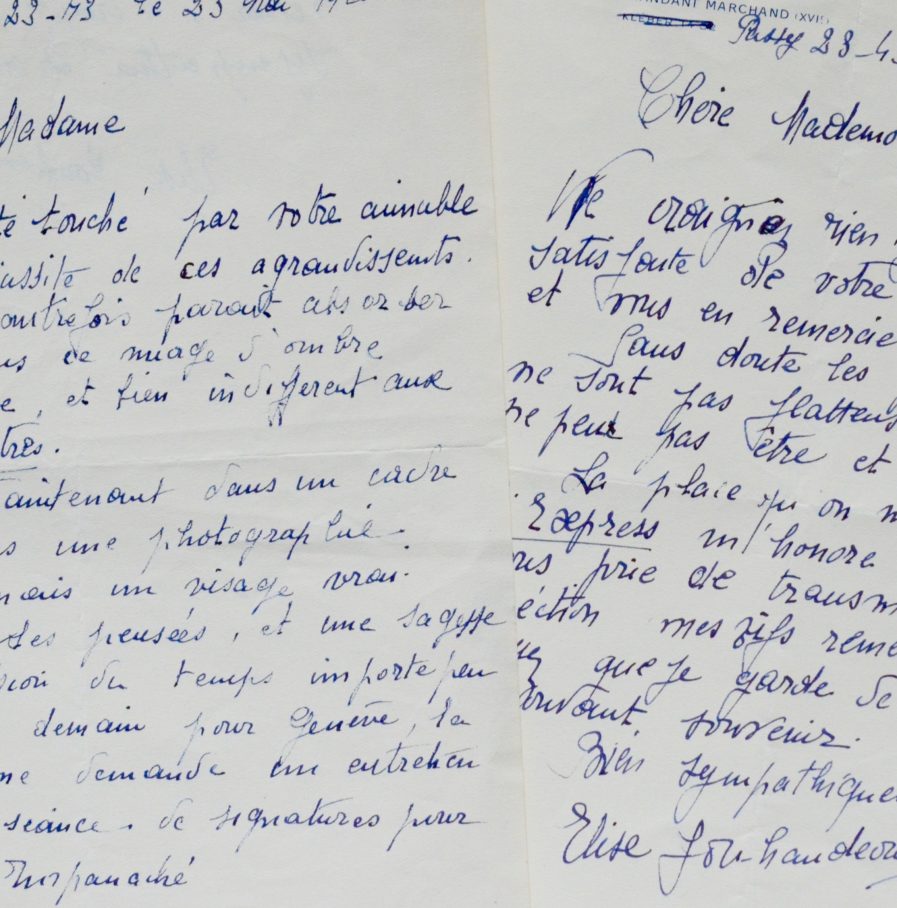 23-73 le 23 Mai
Madame
té touché par votre aimable
ussite de ces agrandissents.
outrefois parait absorber
us de nuage d'ombre
e, et bien indifferent aux
tres.
aintenant dans un cadre
s une photographie -
mais un visage vrai.
ses pensées, et une sagesse
sion du temps importe peu
demain pour Genève, la
me demande un entretien
séance. de signatures pour
NDANT MARCHAND (XVIE)
KLEBER
Passy 23-4
Chère Mademo
Ne craignez rien
satisfaite de votre
et vous en remercie
Sans doute les
ne sont pas flatteus
ne peut pas être et
La place qu'on m
Express m'honore
ous prie de transm
ection mes vifs reme
que je garde de
souvenir.
Bien sympathique
Elise Jouhandeau